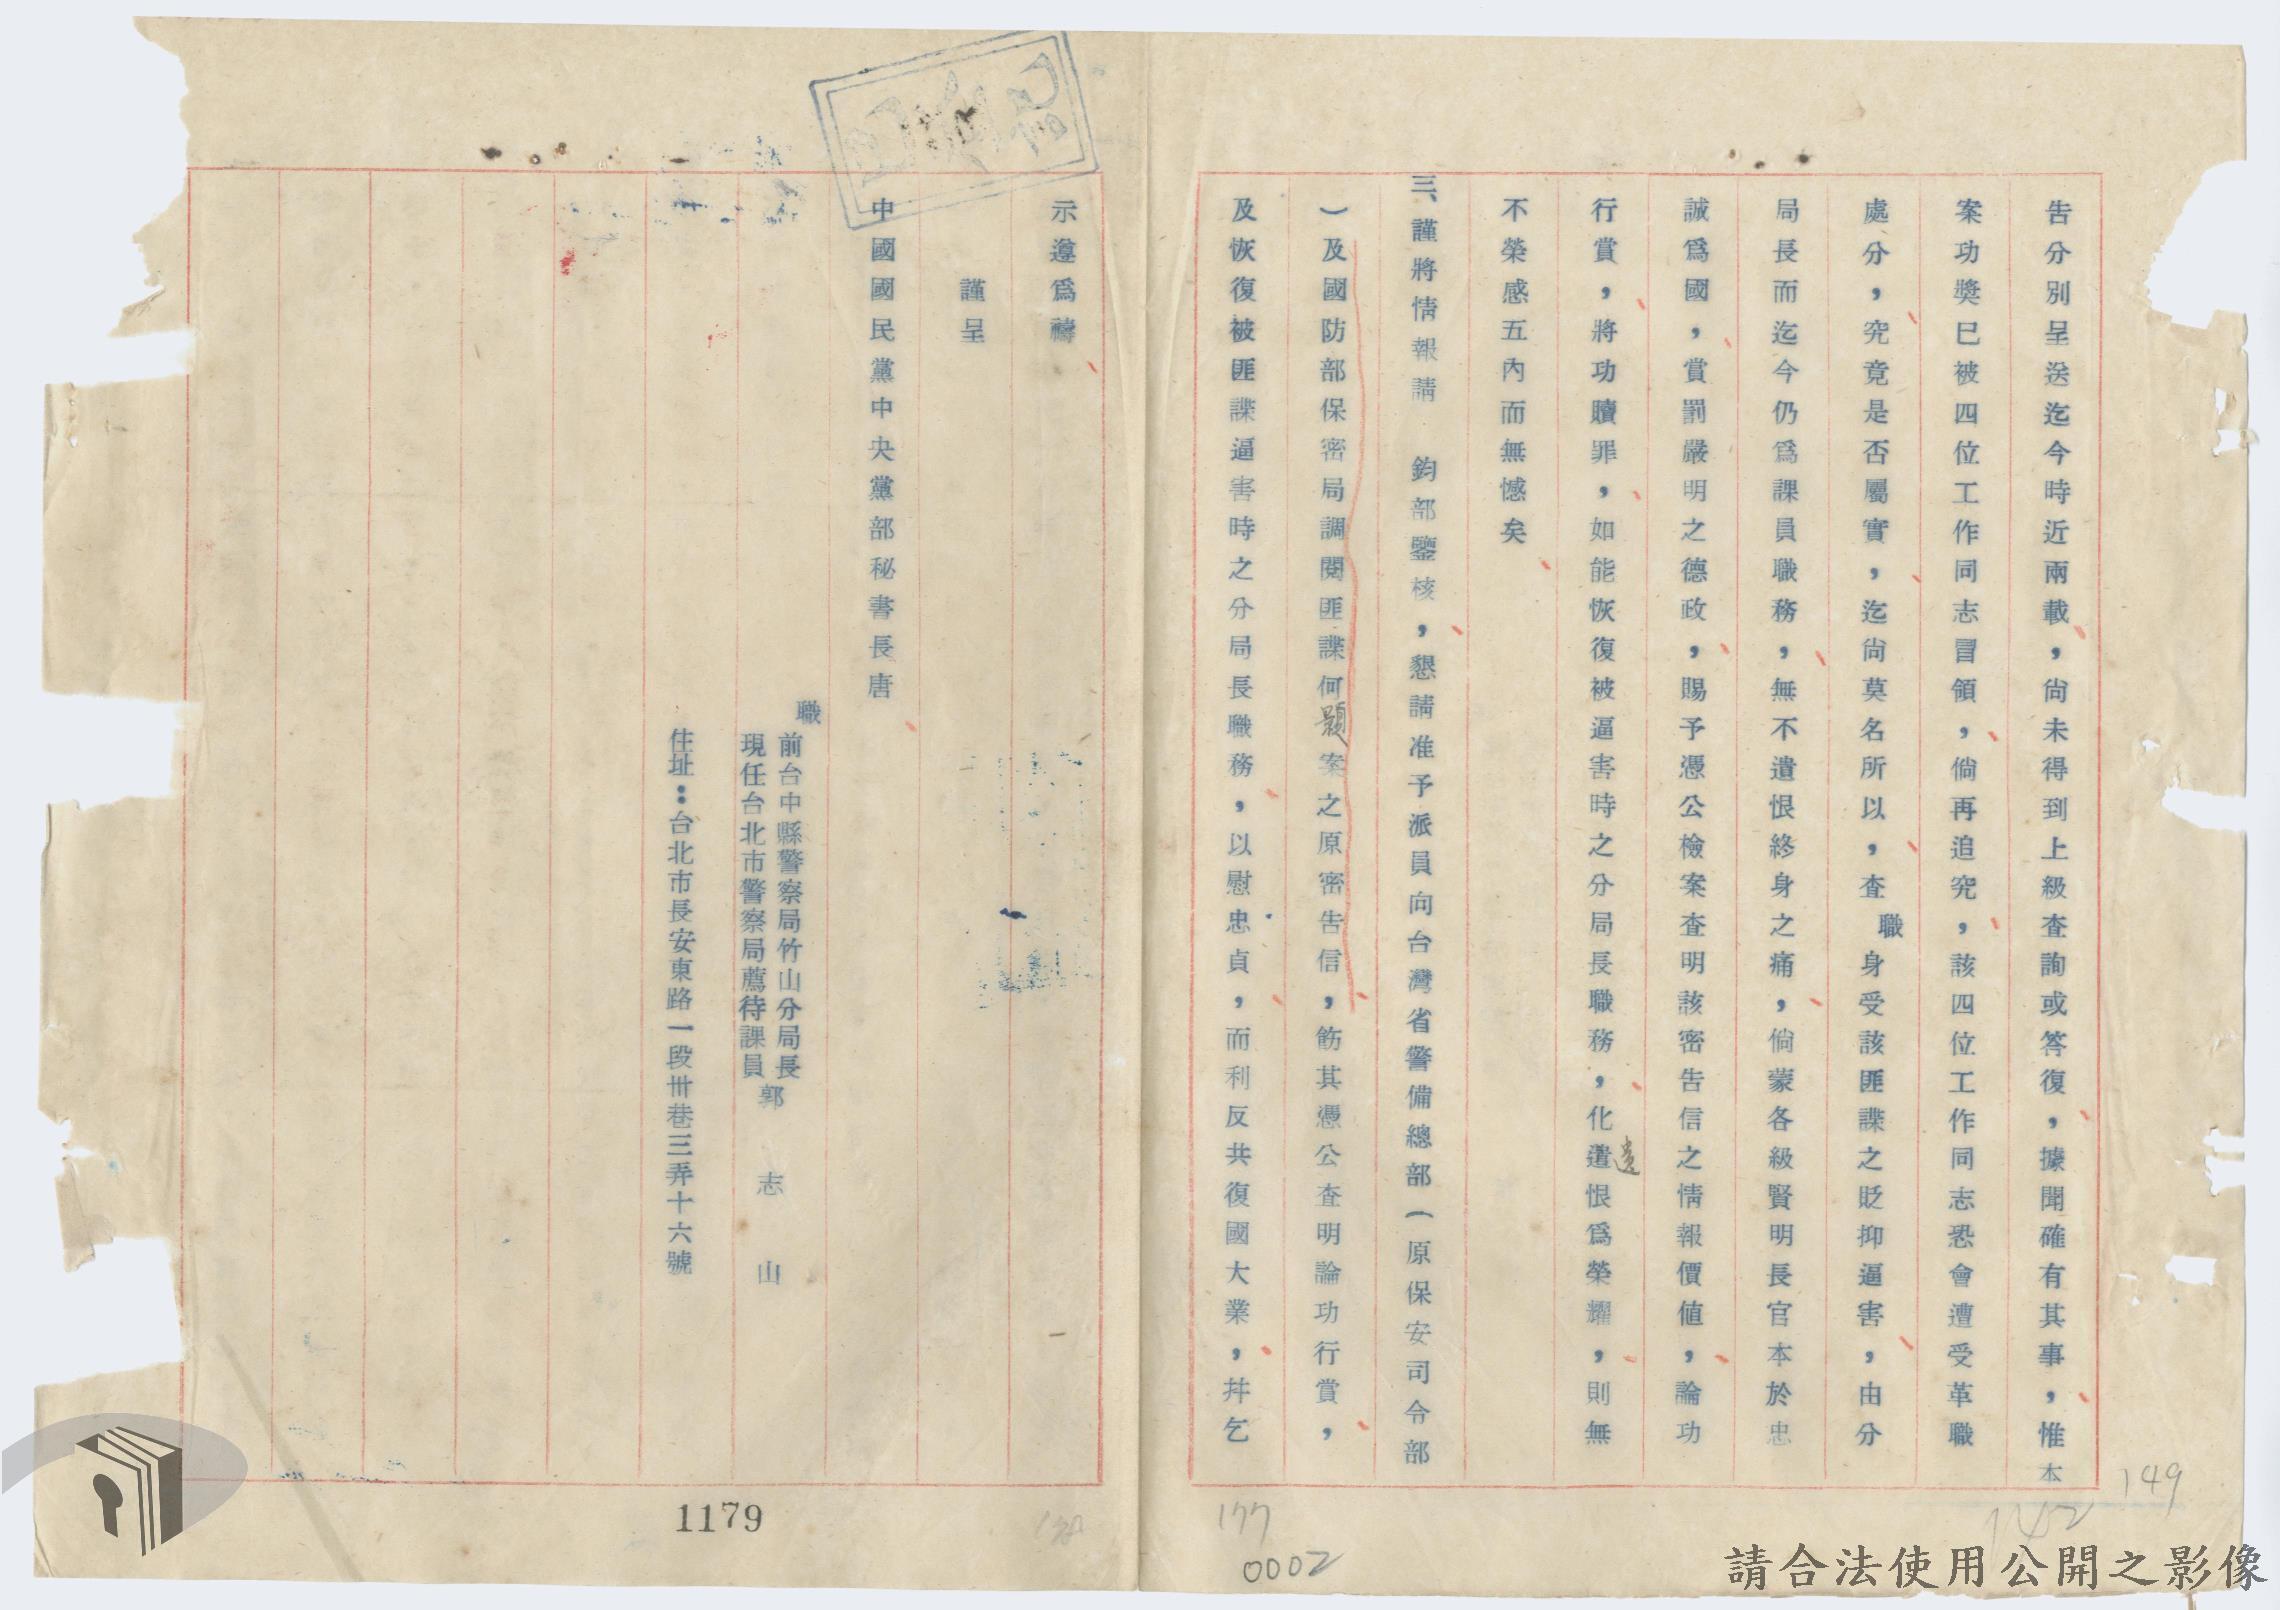 告分別呈送迄今時近兩載，尙未得到上級查詢或答復，據聞確有其事，惟本
案功獎已被四位工作同志冒領，倘再追究，該四位工作同志恐會遭受革職
處分，究竟是否屬實，迄尙莫名所以，查職身受該匪諜之貶抑逼害，由分
局長而迄今仍爲課員職務，無不遺恨終身之痛，倘蒙各級賢明長官本於忠
誠爲國，賞罰嚴明之德政，賜予憑公檢案查明該密告信之情報價値，論功
行賞，將功贖罪，如能恢復被逼害時之分局長職務，化遺恨爲榮耀，則無
不榮感五內而無憾矣
三、謹將情報請　鈞部鑒核，懇請准予派員向台灣省警備總部（原保安司令部
）及國防部保密局調閱匪諜何題案之原密告信，飭其憑公查明論功行賞，
及恢復被匪諜逼害時之分局長職務，以慰忠貞，而利反共復國大業，幷乞
示遵爲禱
謹呈
中國國民黨中央黨部秘書長唐
職
前台中縣警察局竹山分局長
現任台北市警察局薦待課員
郭志山
住址：台北市長安東路一段卅巷三弄十六號
149
142
177
0002
1179
請合法使用公開之影像